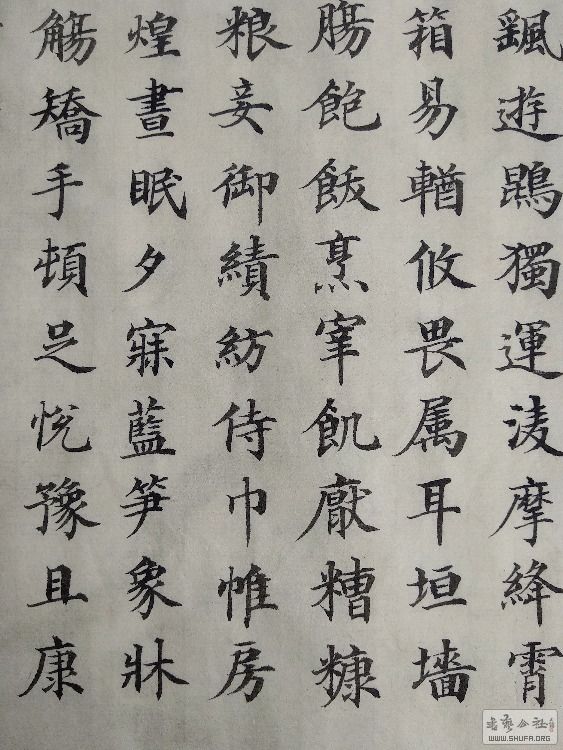 飖遊鵾獨運淩摩絳霄
箱易輶攸畏属耳垣墻
腸飽飯烹宰飢厭糟糠
粮妾御績紡侍巾帷房
煌晝眠夕寐藍笋象牀
觴矯手頓足悦豫且康
書藝公社
WWW.SHUFA.ORG